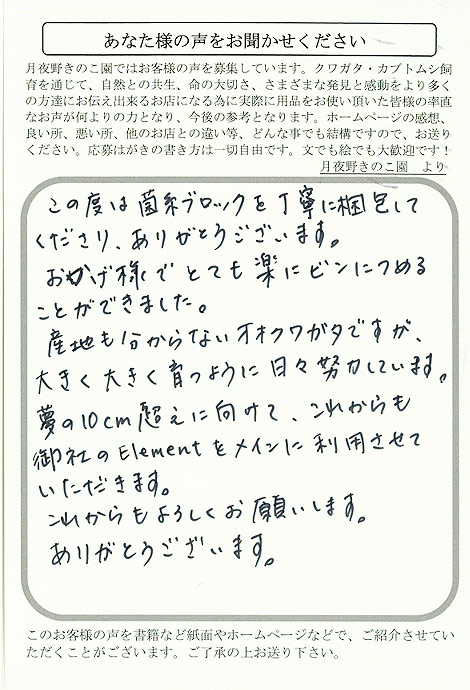 あなた様の声をお聞かせください
月夜野きのこ園ではお客様の声を募集しています。クワガタ・カブトムシ飼
育を通じて、自然との共生、命の大切さ、さまざまな発見と感動をより多く
の方達にお伝え出来るお店になる為に実際に用品をお使い頂いた皆様の率直
なお声が何よりの力となり、今後の参考となります。ホームページの感想、
良い所、悪い所、他のお店との違い等、どんな事でも結構ですので、お送り
ください。応募はがきの書き方は一切自由です。文でも絵でも大歓迎です！
月夜野きのこ園　より
この度は菌糸ブロックを丁寧に梱包して
くださり、ありがとうございます。
おかげ様でとても楽にビンにつめる
ことができました。
産地も分からないオオクワガタですが、
大きく大きく育つように日々努力しています。
夢の10cm超えに向けて、これからも
御社のElementをメインに利用させて
いただきます。
これからもよろしくお願いします。
ありがとうございます。
このお客様の声を書籍など紙面やホームページなどで、ご紹介させてい
ただくことがございます。ご了承の上お送り下さい。